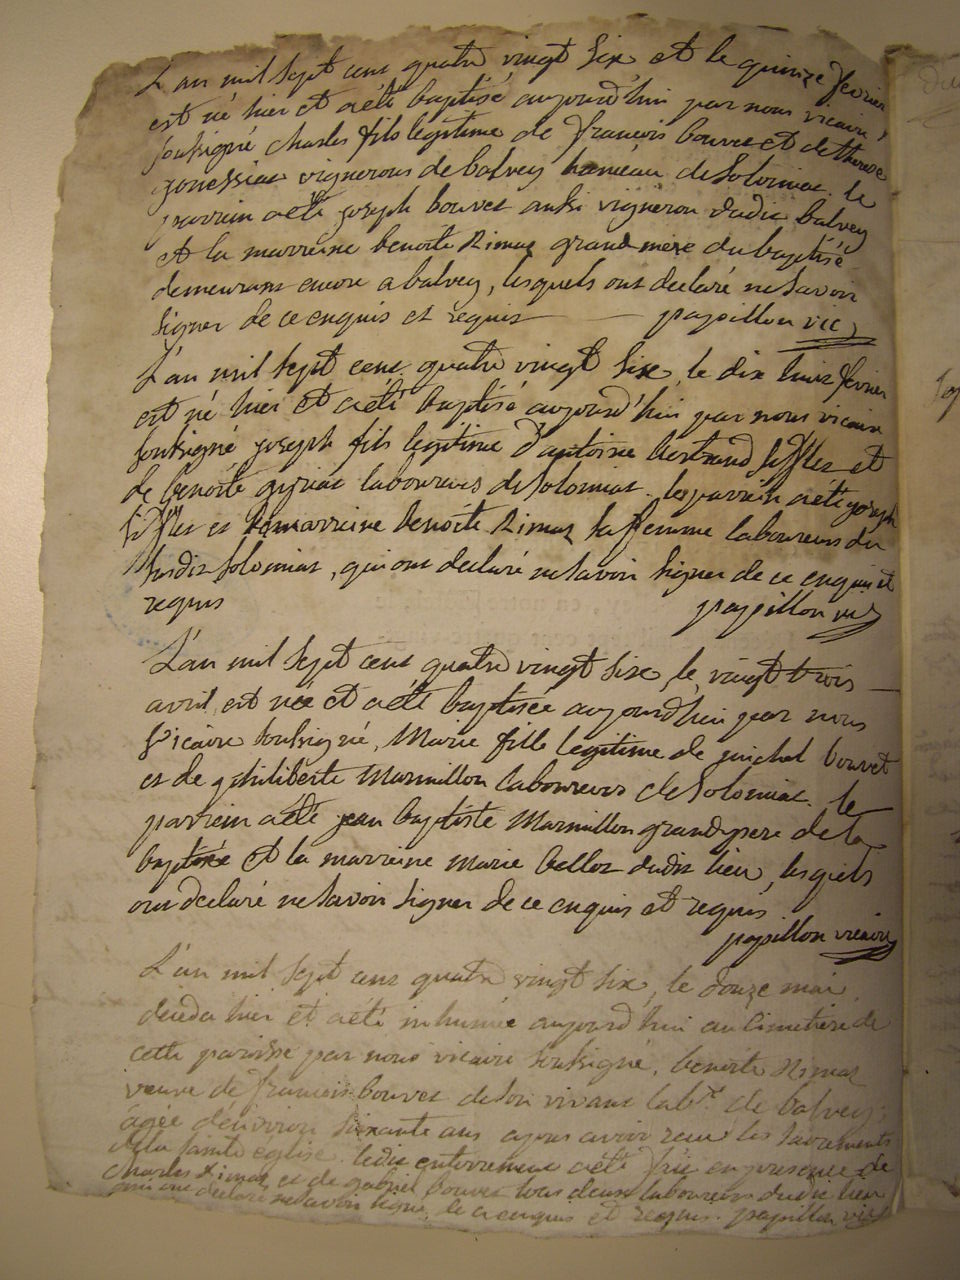 L'an mil sept cens quatre vingt six et le quinze fevrier
est né hier et a eté baptisé aujourd'hui par nous vicaire
soussigné charles fils legitime de francois bouvet et de therese
gonessiat vignerons de balvey hameau de Solomiat. le
parrein a eté joseph bouvet aussi vigneron dudit balvey
et la marreine benoite Rimaz grand mere du baptisé
demeurans encore a balvey, lesquels ont declaré ne savoir
signer de ce enquis et requis papillon vic
L'an mil sept cens quatre vingt six, le dix huit fevrier
est né hier et a eté baptisé aujourd'hui par nous vicaire
soussigné joseph fils legitime d'antoine bertrand et
de benoite laboureurs de Solomiat. le parrein a eté joseph
et la marreine benoite Rimaz sa femme laboureurs du
susdit Solomiat, qui ont declaré ne savoir signer de ce enquis et
requis papillon vic
L'an mil sept cens quatre vingt six, le vingt trois
avril, est née et a eté baptisée aujourd'hui par nous
vicaire soussigné, Marie fille legitime de michel bouvet
et de philiberte Marmillon laboureurs de Solomiat. le
parrein a eté jean baptiste Marmillon grand pere de la
baptisée et la marreine marie belloz dudit lieu, lesquels
ont declaré ne savoir signer de ce enquis et requis
papillon vicaire
L'an mil sept cens quatre vingt six, le douze mai,
deceda hier et a eté inhumée aujourd'hui au cimetiere de
cette paroisse par nous vicaire soussigné, benoite Rimaz
veuve de francois bouvet de son vivant labr. de balvey,
agée d'environ soixante ans apres avoir recu les sacrements
de la sainte eglise. ledit enterrement a eté fait en presence de
charles Rimaz et de gabriel bouvet tous deux laboureurs dudit lieu
qui ont declaré ne savoir signer de ce enquis et requis. papillon vic